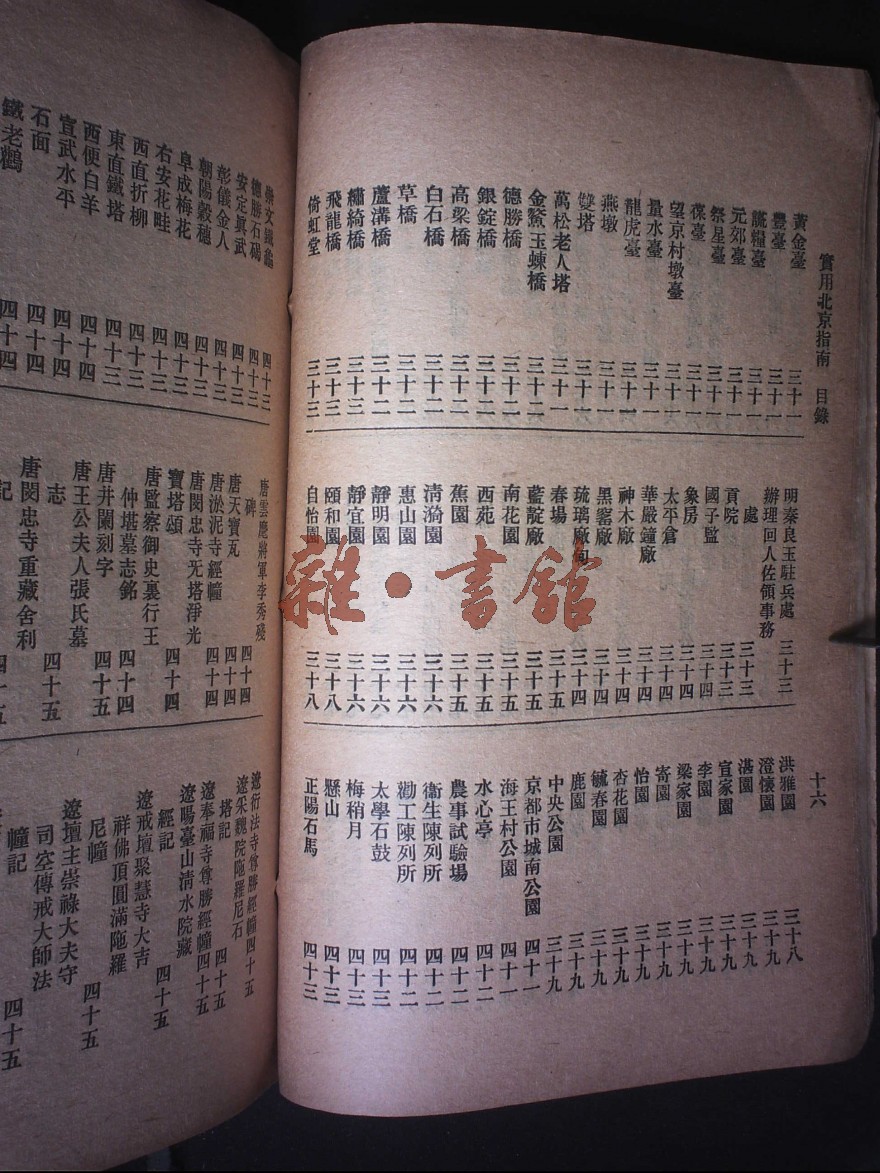 實用北京指南 目錄 十六
黃金臺 三十一
豐臺 三十一
謊糧臺 三十一
元郊臺 三十一
祭星臺 三十一
葆臺 三十一
望京村墩臺 三十一
量水臺 三十一
龍虎臺 三十一
燕墩 三十一
雙塔 三十一
萬松老人塔 三十一
金鰲玉蝀橋 三十二
德勝橋 三十二
銀錠橋 三十二
高梁橋 三十二
白石橋 三十二
草橋 三十二
蘆溝橋 三十二
繡綺橋 三十三
飛龍橋 三十三
倚虹堂 三十三
明秦良玉駐兵處 三十三
辦理回人佐領事務
處 三十三
貢院 三十三
國子監 三十四
象房 三十四
太平倉 三十四
華嚴鐘廠 三十四
神木廠 三十四
黑窰廠 三十四
琉璃廠甸 三十四
春場 三十五
藍靛廠 三十五
南花園 三十五
西苑 三十五
蕉園 三十五
淸漪園 三十六
惠山園 三十六
靜明園 三十六
靜宜園 三十六
頤和園 三十八
自怡園 三十八
洪雅園 三十八
澄懷園 三十九
湛園 三十九
宣家園 三十九
李園 三十九
梁家園 三十九
寄園 三十九
怡園 三十九
杏花園 三十九
毓春園 三十九
鹿園 三十九
中央公園 三十九
京都市城南公園 四十一
海王村公園 四十一
水心亭 四十二
農事試驗場 四十二
衞生陳列所 四十二
勸工陳列所 四十二
太學石鼓 四十三
梅稍月 四十三
懸山 四十三
正陽石馬 四十三
崇文鐵龜 四十三
德勝石碣 四十三
安定眞武 四十三
彰儀金人 四十三
朝陽穀穗 四十三
阜成梅花 四十三
右安花畦 四十三
西直折柳 四十三
東直鐵塔 四十三
西便白羊 四十四
宣武水平 四十四
石面 四十四
鐵老鸛 四十四
唐雲麾將軍李秀殘
碑 四十四
唐天寶瓦 四十四
唐淤泥寺經幢 四十四
唐閔忠寺无塔淨光
寶塔頌 四十四
唐監察御史裏行王
仲堪墓志銘 四十四
唐井闌刻字 四十五
唐王公夫人張氏墓
志 四十五
唐閔忠寺重藏舍利
記 四十五
遼衍法寺尊勝經幢 四十五
遼采魏院陁羅尼石
塔記 四十五
遼奉福寺尊勝經幢 四十五
遼暘臺山淸水院藏
經記 四十五
遼戒壇聚慧寺大吉
祥佛頂圓滿陁羅
尼幢 四十五
遼壇主崇祿大夫守
司空傳戒大師法
幢記 四十五